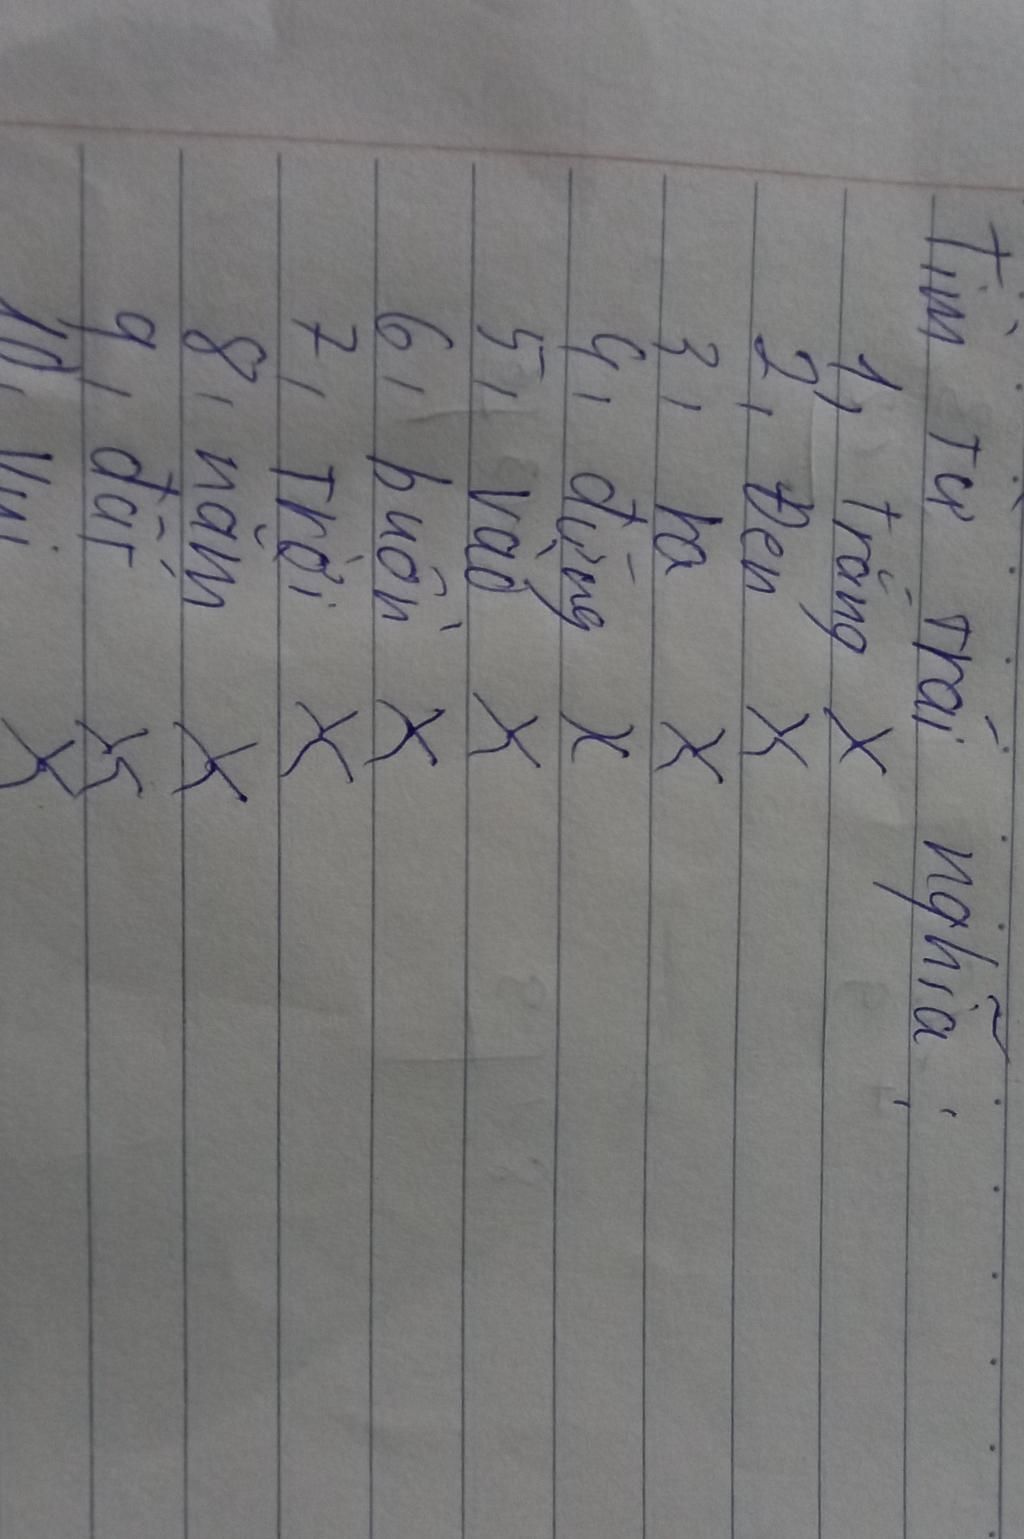 Tìm Từ Trái nghĩa :
1, Trắng X
2, Đen X
3, ra X
4, đứng X
5, Vào X
6, buồn X
7, Trời X
8, nằm X
9, đất X
10, Vui X